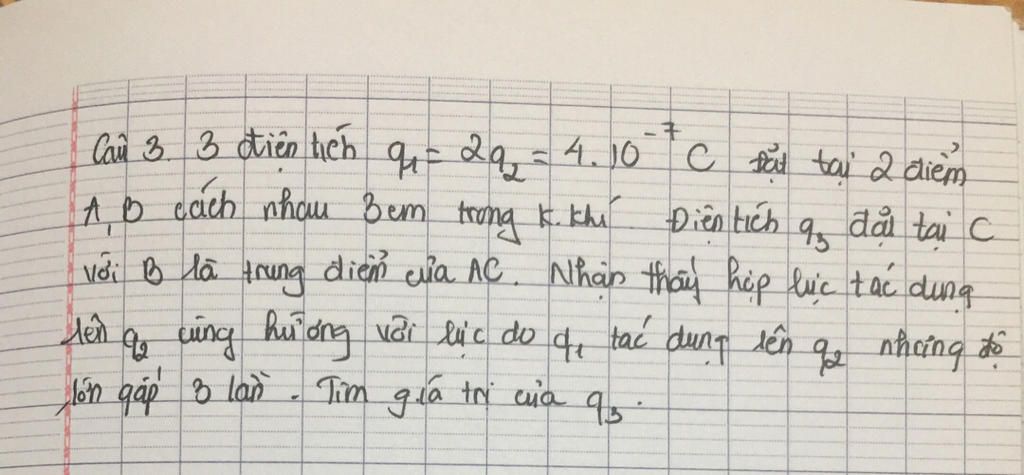 Câu 3. 3 điện tích q₁ = 2q₂ = 4.10⁻⁷ C đặt tại 2 điểm
A, B cách nhau 3cm trong k.khí Điện tích q₃ đặt tại C
với B là trung điểm của AC. Nhận thấy hợp lực tác dụng
lên q₂ cùng hướng với lực do q₁ tác dụng lên q₂ nhưng độ
lớn gấp 3 lần. Tìm giá trị của q₃.